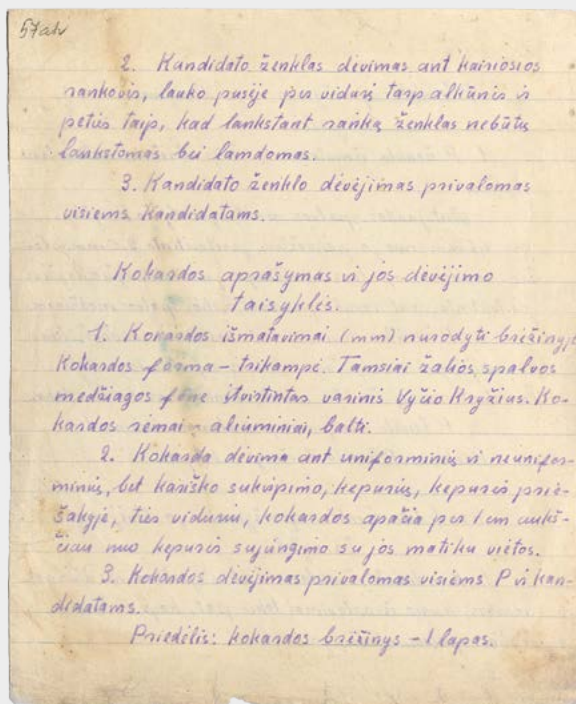 57atv
2. Kandidato ženklas dėvimas ant kairiosios
rankovės, lauko pusėje per vidurį tarp alkūnės ir
peties taip, kad lankstant ranką ženklas nebūtų
lankstomas bei lamdomas.
3. Kandidato ženklo dėvėjimas privalomas
visiems kandidatams.
Kokardos aprašymas ir jos dėvėjimo
taisyklės.
1. Kokardos išmatavimai (mm) nurodyti brėžinyje
Kokardos forma – trikampė. Tamsiai žalios spalvos
medžiagos fone įtvirtintas varinis Vyčio Kryžius. Ko-
kardos rėmai aliuminiai, balti.
2. Kokarda dėvima ant uniforminių ir neunifor-
minių, bet kariško sukirpimo, kepurių, kepurės prie-
šakyje, ties viduriu, kokardos apačia per 1 cm aukš-
čiau nuo kepurės sujungimo su jos matiku vietos.
3. Kokardos dėvėjimas privalomas visiems P ir kan-
didatams.
Priedėlis: kokardos brėžinys – 1 lapas.